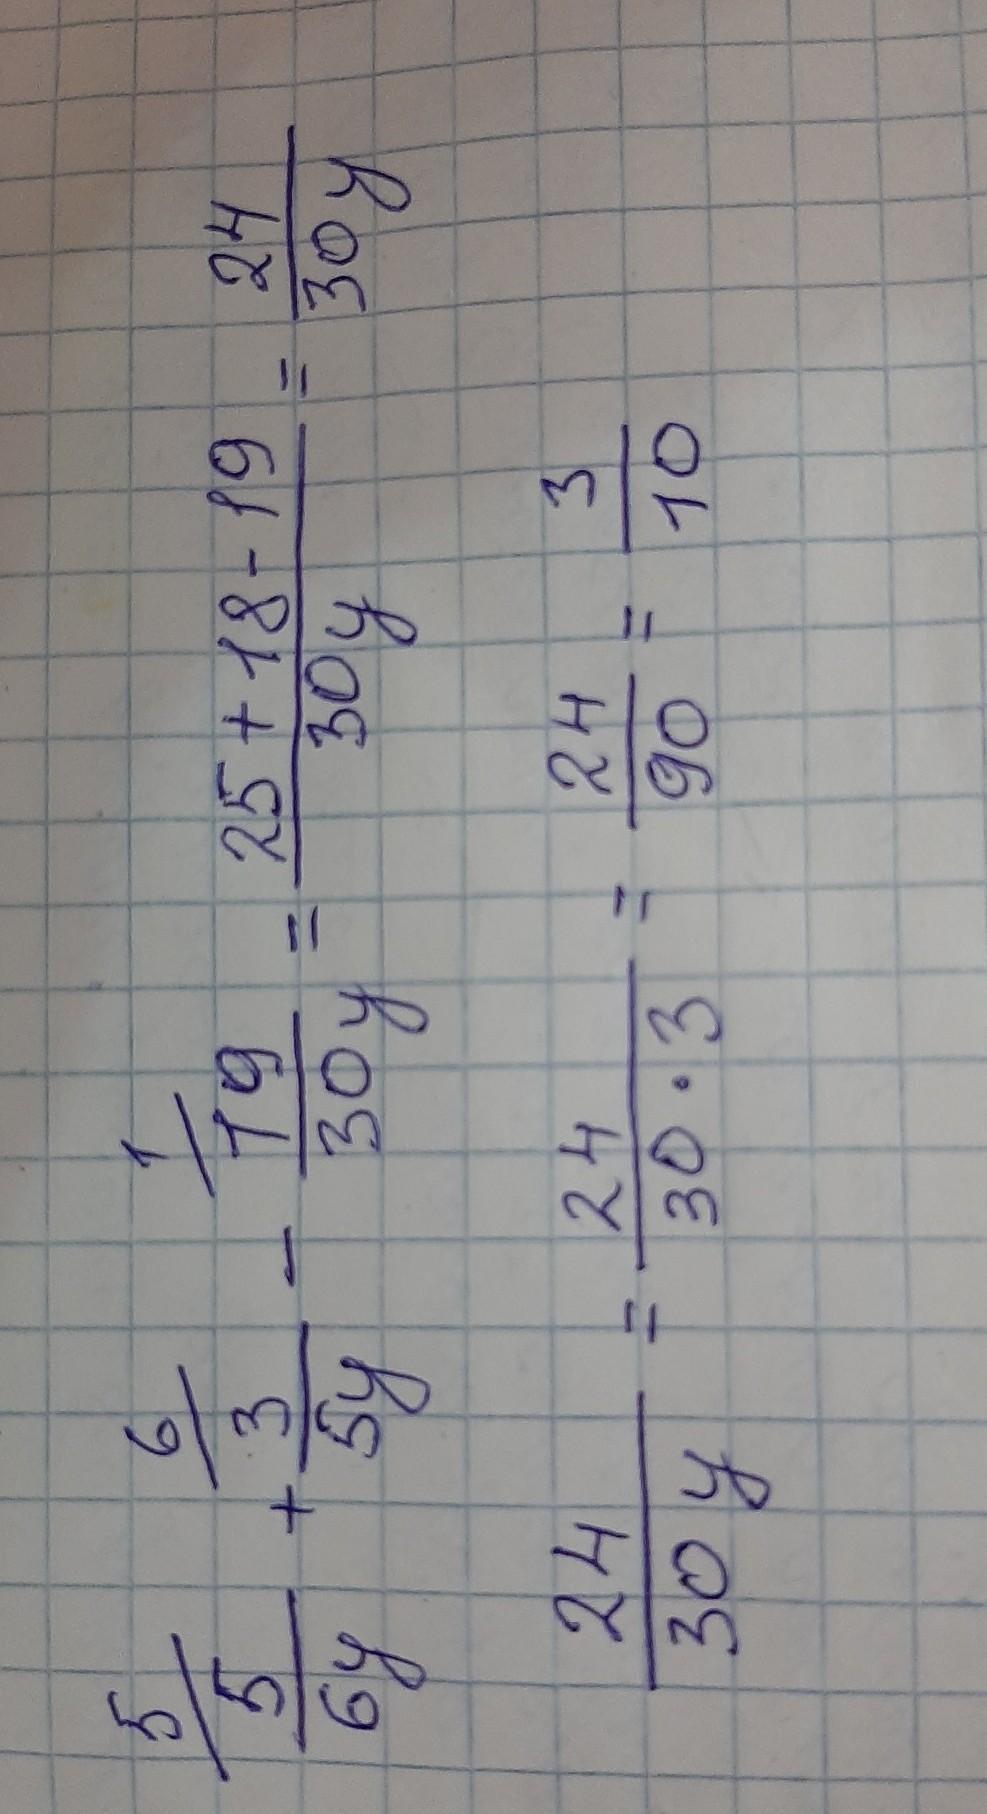 5/ 6/ 1/
5/6y + 3/5y - 19/30y = 25+18-19/30y = 24/30y
24/30y = 24/30·3 = 24/90 = 3/10